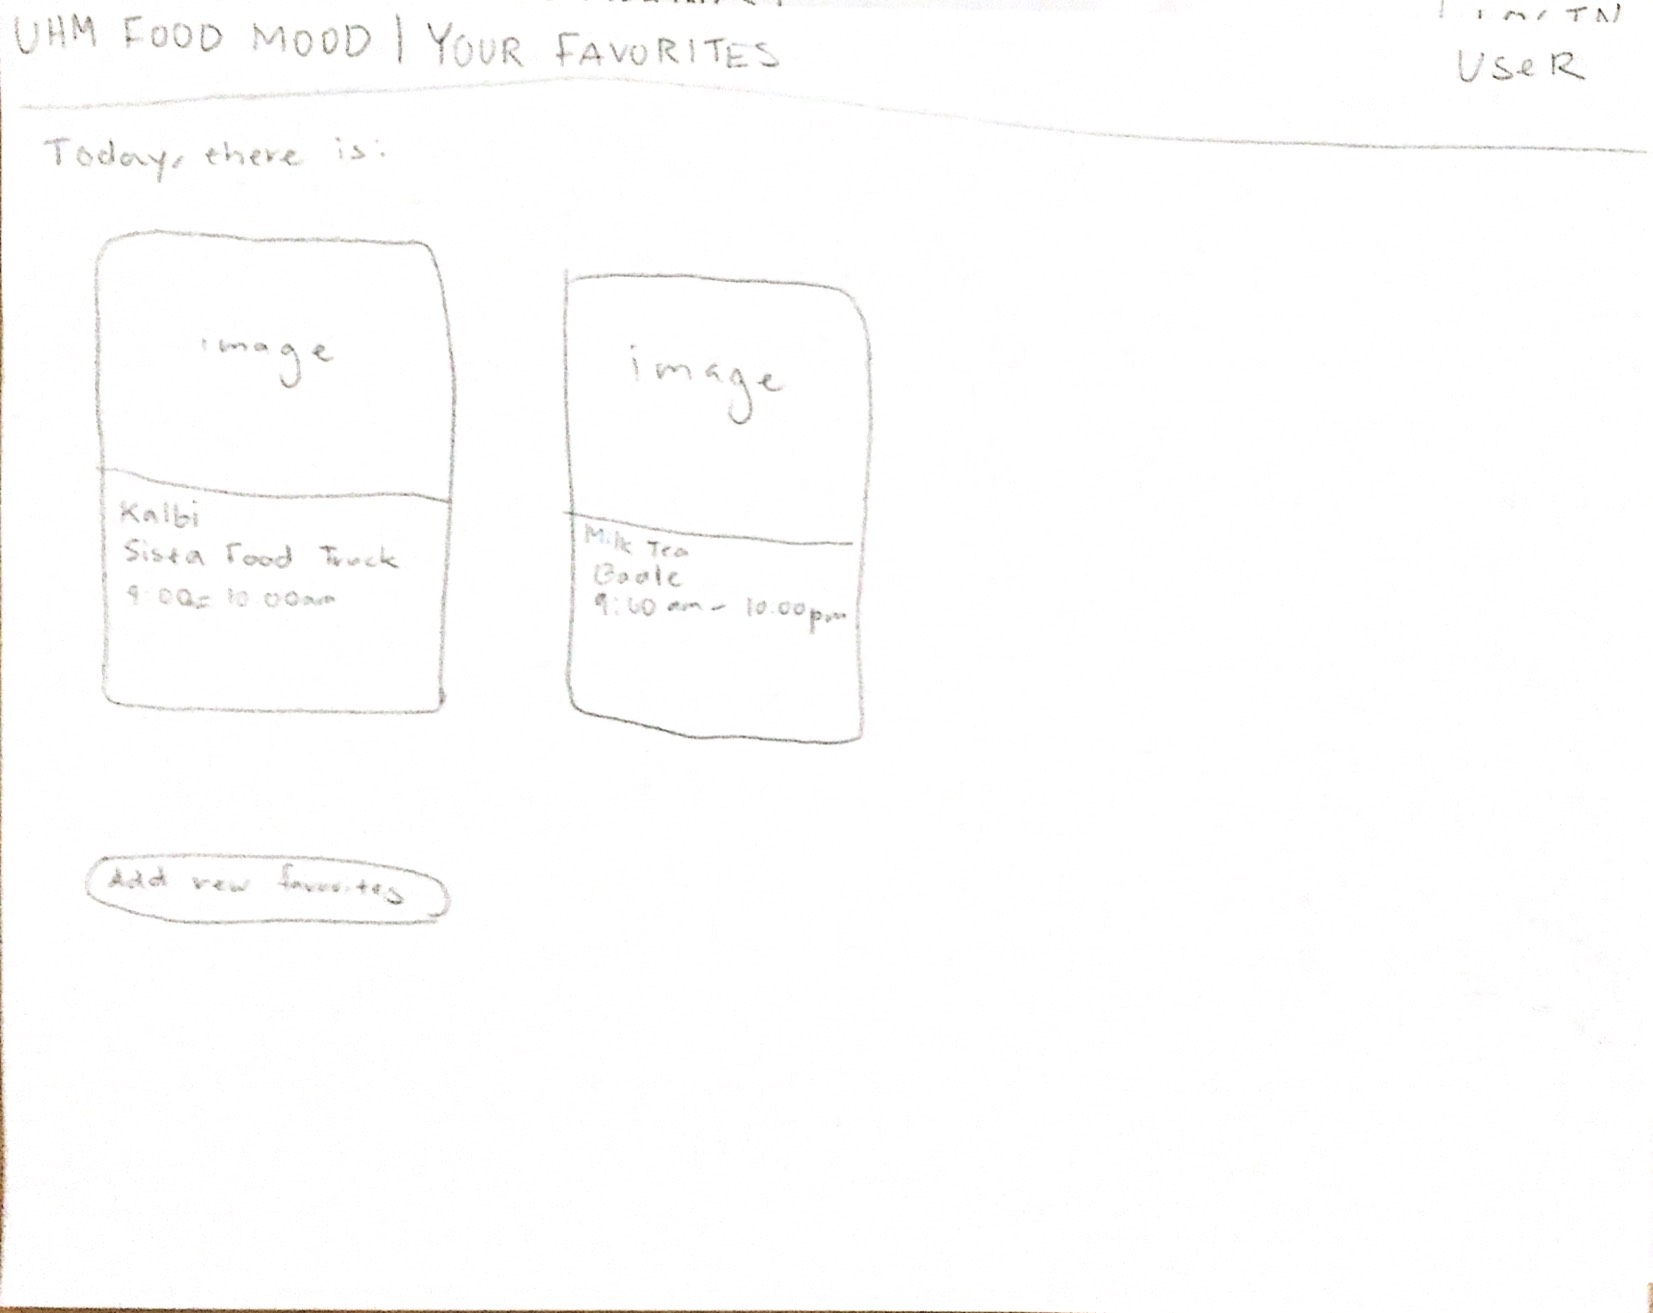 UHM FOOD MOOD | YOUR FAVORITES
USeR
Today, there is:
image
Kalbi
Sista Food Truck
9:00- 10:00am
image
Milk Tea
9:00 am - 10:00pm
Add new favorites